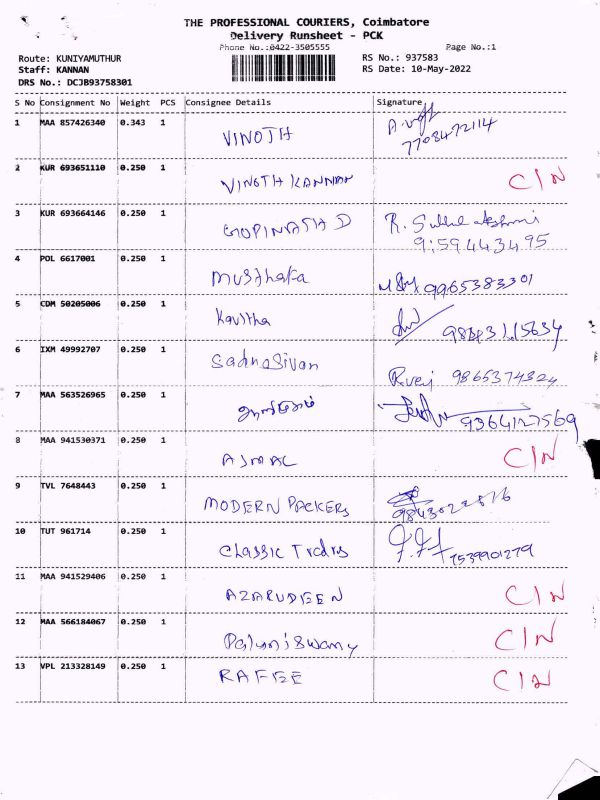 THE PROFESSIONAL COURIERS, Coimbatore
Delivery Runsheet - PCK
Phone No.:0422-3505555 Page No.:1
Route: KUNIYAMUTHUR RS No.: 937583
Staff: KANNAN RS Date: 10-May-2022
DRS No.: DCJB93758301
S No Consignment No Weight PCS Consignee Details Signature
1 MAA 857426340 0.343 1 VINOTH 7708472114
2 KUR 693651110 0.250 1 VINOTH KANNAN C/N
3 KUR 693664146 0.250 1 GOPINATH D R.
9:59443495
4 POL 6617001 0.250 1 Musthafa 9965383301
5 CDM 50205006 0.250 1 Kavitha
6 IXM 49992707 0.250 1 Sadhasivan 9865374324
7 MAA 563526965 0.250 1
8 MAA 941530371 0.250 1 AJMAL C/N
9 TVL 7648443 0.250 1 MODERN PACKERS
10 TUT 961714 0.250 1 Classic Trdrs 7539901279
11 MAA 941529406 0.250 1 AZARUDEEN C/N
12 MAA 566184067 0.250 1 Palaniswamy C/N
13 VPL 213328149 0.250 1 RAFEE C/N